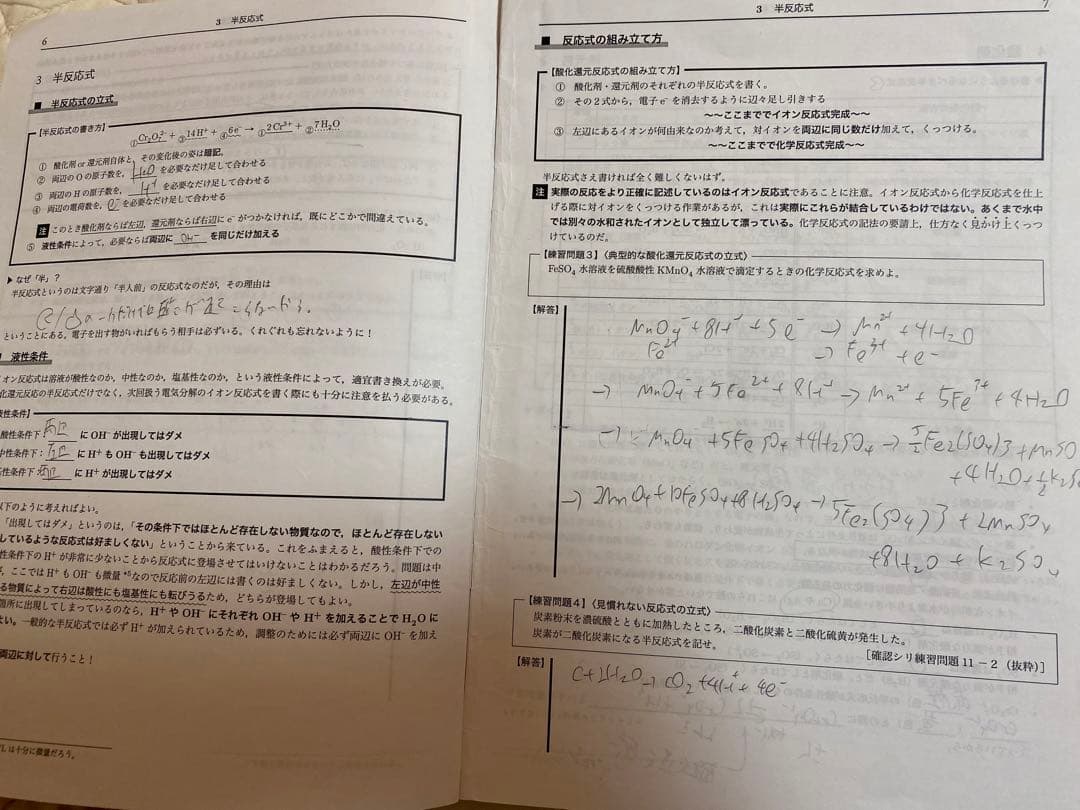 6
3 半反応式
3 半反応式
■ 半反応式の立式
【半反応式の書き方】
①Cr₂O₇²⁻ + ③14H⁺ + ④6e⁻ → ①2Cr³⁺ + ②7H₂O
① 酸化剤 or 還元剤自体と、その変化後の姿は暗記。
② 両辺の O の原子数を、H₂O を必要なだけ足して合わせる
③ 両辺の H の原子数を、H⁺ を必要なだけ足して合わせる
④ 両辺の電荷数を、e⁻ を必要なだけ足して合わせる
注 このとき酸化剤ならば左辺、還元剤ならば右辺に e⁻ がつかなければ、既にどこかで間違えている。
⑤ 液性条件によって、必要ならば両辺に OH⁻ を同じだけ加える
▶ なぜ「半」?
半反応式というのは文字通り「半人前」の反応式なのだが、その理由は
ということにある。電子を出す物がいればもらう相手は必ずいる。くれぐれも忘れないように!
液性条件
オン反応式は溶液が酸性なのか、中性なのか、塩基性なのか、という液性条件によって、適宜書き換えが必要。
化還元反応の半反応式だけでなく、次回扱う電気分解のイオン反応式を書く際にも十分に注意を払う必要がある。
液性条件】
酸性条件下 両辺 に OH⁻ が出現してはダメ
中性条件下: 左辺 に H⁺ も OH⁻ も出現してはダメ
性条件下 両辺 に H⁺ が出現してはダメ
以下のように考えればよい。
「出現してはダメ」というのは、「その条件下ではほとんど存在しない物質なので、ほとんど存在しない
しているような反応式は好ましくない」ということから来ている。これをふまえると、酸性条件下での
性条件下の H⁺ が非常に少ないことから反応式に登場させてはいけないことはわかるだろう。問題は中
、ここでは H⁺ も OH⁻ も微量なので反応前の左辺には書くのは好ましくない。しかし、左辺が中性
る物質によって右辺は酸性にも塩基性にも転びうるため、どちらが登場してもよい。
箇所に出現してしまっているのなら、H⁺ や OH⁻ にそれぞれ OH⁻ や H⁺ を加えることで H₂O に
よい。一般的な半反応式では必ず H⁺ が加えられているため、調整のためには必ず両辺に OH⁻ を加え
両辺に対して行うこと!
L は十分に微量だろう。
3 半反応式
7
■ 反応式の組み立て方
【酸化還元反応式の組み立て方】
① 酸化剤・還元剤のそれぞれの半反応式を書く。
② その2式から、電子 e⁻ を消去するように辺々足し引きする
〜〜ここまででイオン反応式完成〜〜
③ 左辺にあるイオンが何由来なのか考えて、対イオンを両辺に同じ数だけ加えて、くっつける。
〜〜ここまでで化学反応式完成〜〜
半反応式さえ書ければ全く難しくないはず。
注 実際の反応をより正確に記述しているのはイオン反応式であることに注意。イオン反応式から化学反応式を仕上
げる際に対イオンをくっつける作業があるが、これは実際にこれらが結合しているわけではない。あくまで水中
では別々の水和されたイオンとして独立して漂っている。化学反応式の記法の要請上、仕方なく見かけ上くっつ
けているのだ。
【練習問題3】〈典型的な酸化還元反応式の立式〉
FeSO₄ 水溶液を硫酸酸性 KMnO₄ 水溶液で滴定するときの化学反応式を求めよ。
【解答】
MnO₄⁻ + 8H⁺ + 5e⁻ → Mn²⁺ + 4H₂O
Fe²⁺ → Fe³⁺ + e⁻
→ MnO₄⁻ + 5Fe²⁺ + 8H⁺ → Mn²⁺ + 5Fe³⁺ + 4H₂O
MnO₄ + 5FeSO₄ + 4H₂SO₄ → 5/2Fe₂(SO₄)3 + MnSO
+ 4H₂O + 1/2K₂SO
→ 2MnO₄ + 10FeSO₄ + 8H₂SO₄ → 5Fe₂(SO₄)3 + 2MnSO₄
+ 8H₂O + K₂SO₄
【練習問題4】〈見慣れない反応式の立式〉
炭素粉末を濃硫酸とともに加熱したところ、二酸化炭素と二酸化硫黄が発生した。
炭素が二酸化炭素になる半反応式を記せ。
[確認シリ練習問題 11−2(抜粋)]
【解答】
C + 2H₂O → CO₂ + 4H⁺ + 4e⁻